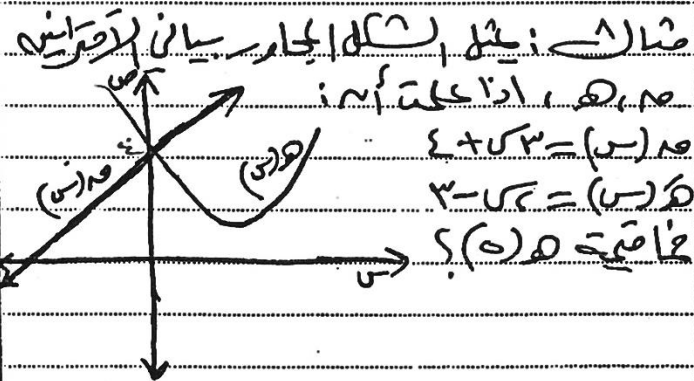 مثال ٨ : يمثل الشكل المجاور بياني الاقترانين
ص
ق ، هـ ، اذا علمت أن :
٤
ق(س) = ٣س + ٤
هـ(س)
ق(س)
هـَ(س) = ٢س - ٣
فما قيمة هـ(٥)؟
س